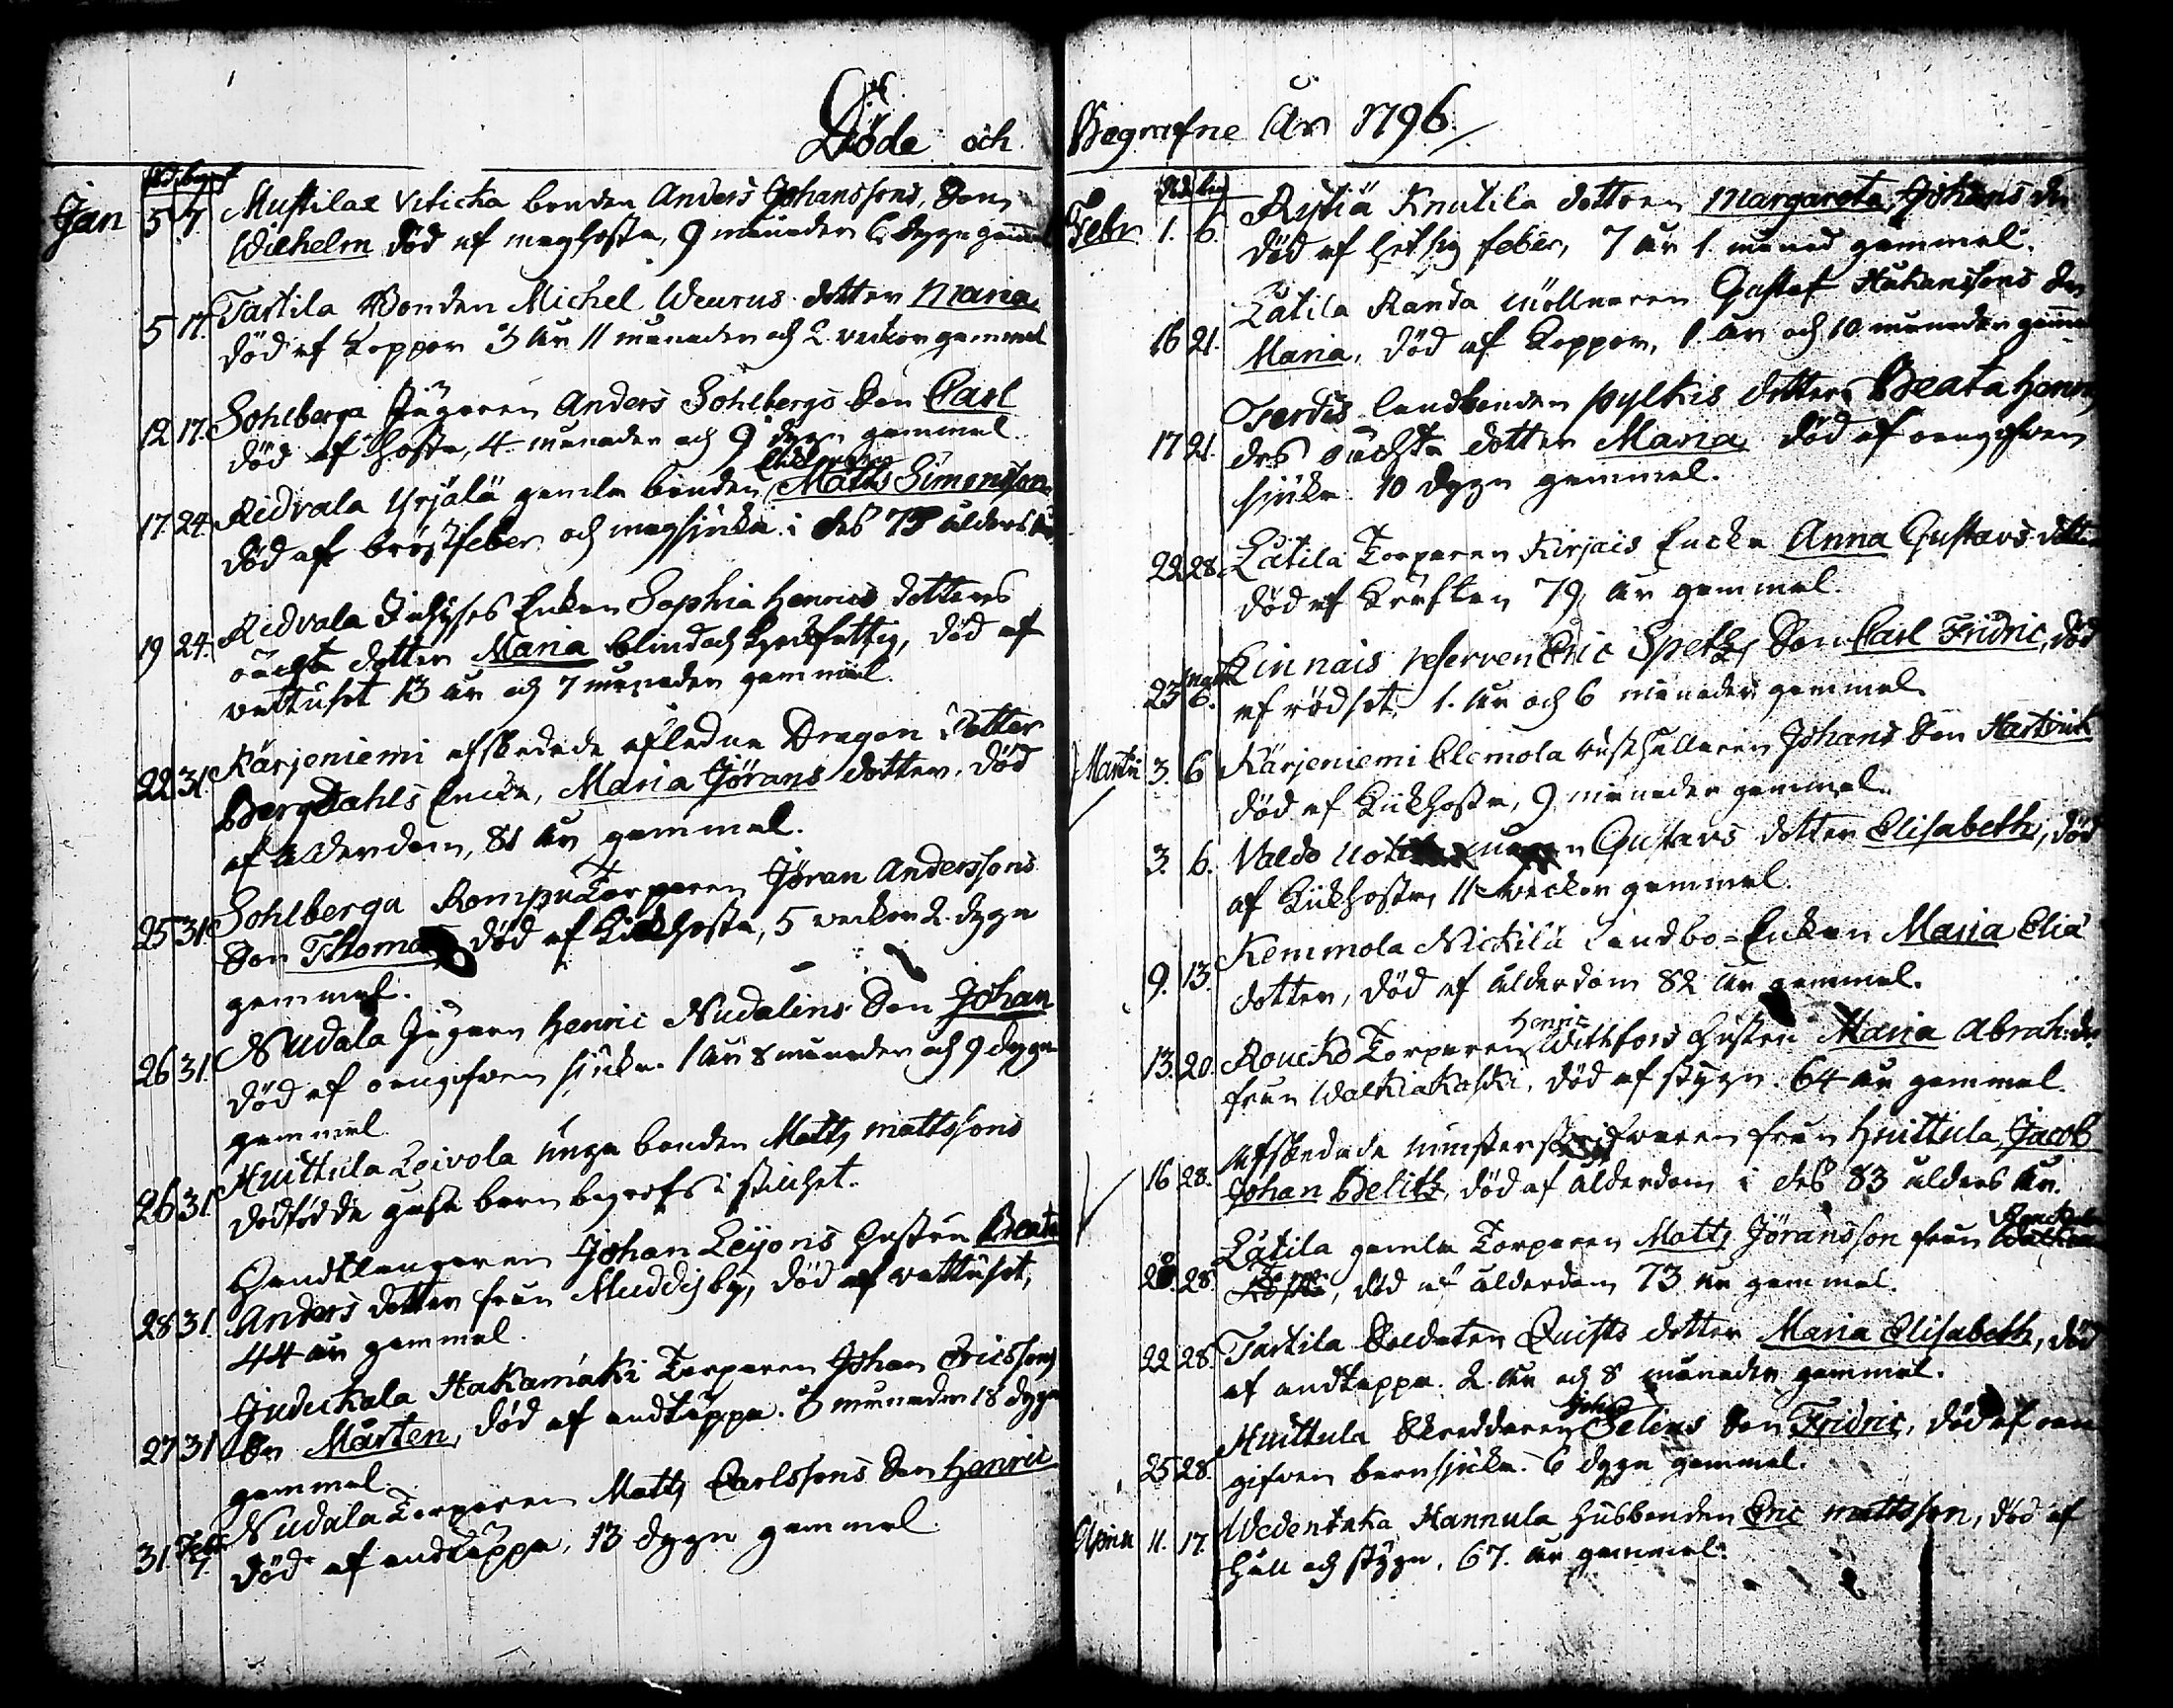 Döde och
Jan 5 7 Mustilax Uticka bonden Anders Johanssons Son
Wilhelm död af maghosta, 9 månader 6 dygn gammal
Tartila Bonden Michel Waurus dotter Maria
5 17. död af Koppor 3 År 11 månader och 2 veckor gammal
Sohlberga Jägaren Anders Sohlbergs Son Carl
12 17. död af Hosta, 4 månader och 9 dygn gammal.
17. 24. Ridvala Yrjälä gamla bonden Matts Simonsson
död af bröstfeber och magsjuka i dess 73 ålders år
Ridvala Enkan Sophia Henrics dotters
19 24. oächta dotter Maria blind och död af
vattusot 13 år och 7 månader gammal.
22 31. Kärjeniemi afskedade aflednæ Dragon Petter
Bergdahls Encka, Maria Görans dotter, död
af ålderdom, 81 år gammal.
25 31. Sohlberga Rompu Torparen Jöran Anderssons
Son Thomas död af Kikhosta, 5 veckor 2 dygn
gammal.
26 31. Nudala Jägarn Henric Nudalins Son Johan
död af oangifven sjuka. 1 År 8 månader och 9 dygn
gammal
26 31. Huittula Leivola unga bonden Matts Mattssons
dödfödde barn begrofs i stillhet.
Handtlangaren Johan Leijons Hustru Beata
28 31. Anders dotter från Muddisby, död af vattusot,
44 år gammal.
Judickala Hakamäki Torparen Johan Ericssons
27 31 Son Mårten, död af andtäppa. 3 månader 18 dygn
gammal.
31. Febr 7. Nudala Torparen Matts Carlssons Son Henric
död af andtäppa, 13 dygn gammal.
Begrafne År 1796.
Febr. 1. 6. Rytiä Knutila dottren Margareta Johans dr
död af hetsig feber, 7 år 1. månad gammal.
Lätila Randa Möllnaren Gustaf Håkanssons dr
16 21. Maria, död af Koppor, 1. år och 10 månader gammal
Tserdis landbonden Pylkis dotters Beata Henrics
17 21. des oächta dotter Maria död af oangifven
sjuka 10 dygn gammal.
22 28. Lätila Torparen Kirjais Encka Anna Gustavs dotter
död af Kräftan 79 år gammal.
23 6. Kinnais reserven Eric Spets Son Carl Fridric, död
af rödsot, 1. år och 6 månader gammal.
Martii 3. 6 Kärjeniemi Clemola rusthållaren Johans Son Hartvick
död af Kikhosta, 9 månader gammal.
3. 6. Valdo Gustavs dotter Elisabeth, död
af Kikhosta, 11 veckor gammal.
9. 13. Kemmola Nickilä Landbo-Enkan Maria Eliæ
dotter, död af ålderdom 82 år gammal.
Henric
13. 20. Roucko Torparen Withfors Hustru Maria Abrah: dr
från Walkiakoski, död af stygn. 64 år gammal.
Afskedade Munsterskrifvaren från Huittula, Jacob
16 28. Johan Belitz, död af ålderdom i dess 83 ålders år.
Lätila gamla Torparen Matts Jöransson från
20. 28. död af ålderdom 73 år gammal.
22 28. Tartila Soldaten Quists dotter Maria Elisabeth, död
af andtäppa. 2 år och 8 månader gammal.
Joh:
25 28. Huittula Skräddaren Selins Son Fridric, död af oan
gifven barnsjuka. 6 dygn gammal.
Aprill 11. 17. Wedentaka Hannula husbonden Eric Mattsson, död af
håll och stygn, 67. år gammal.